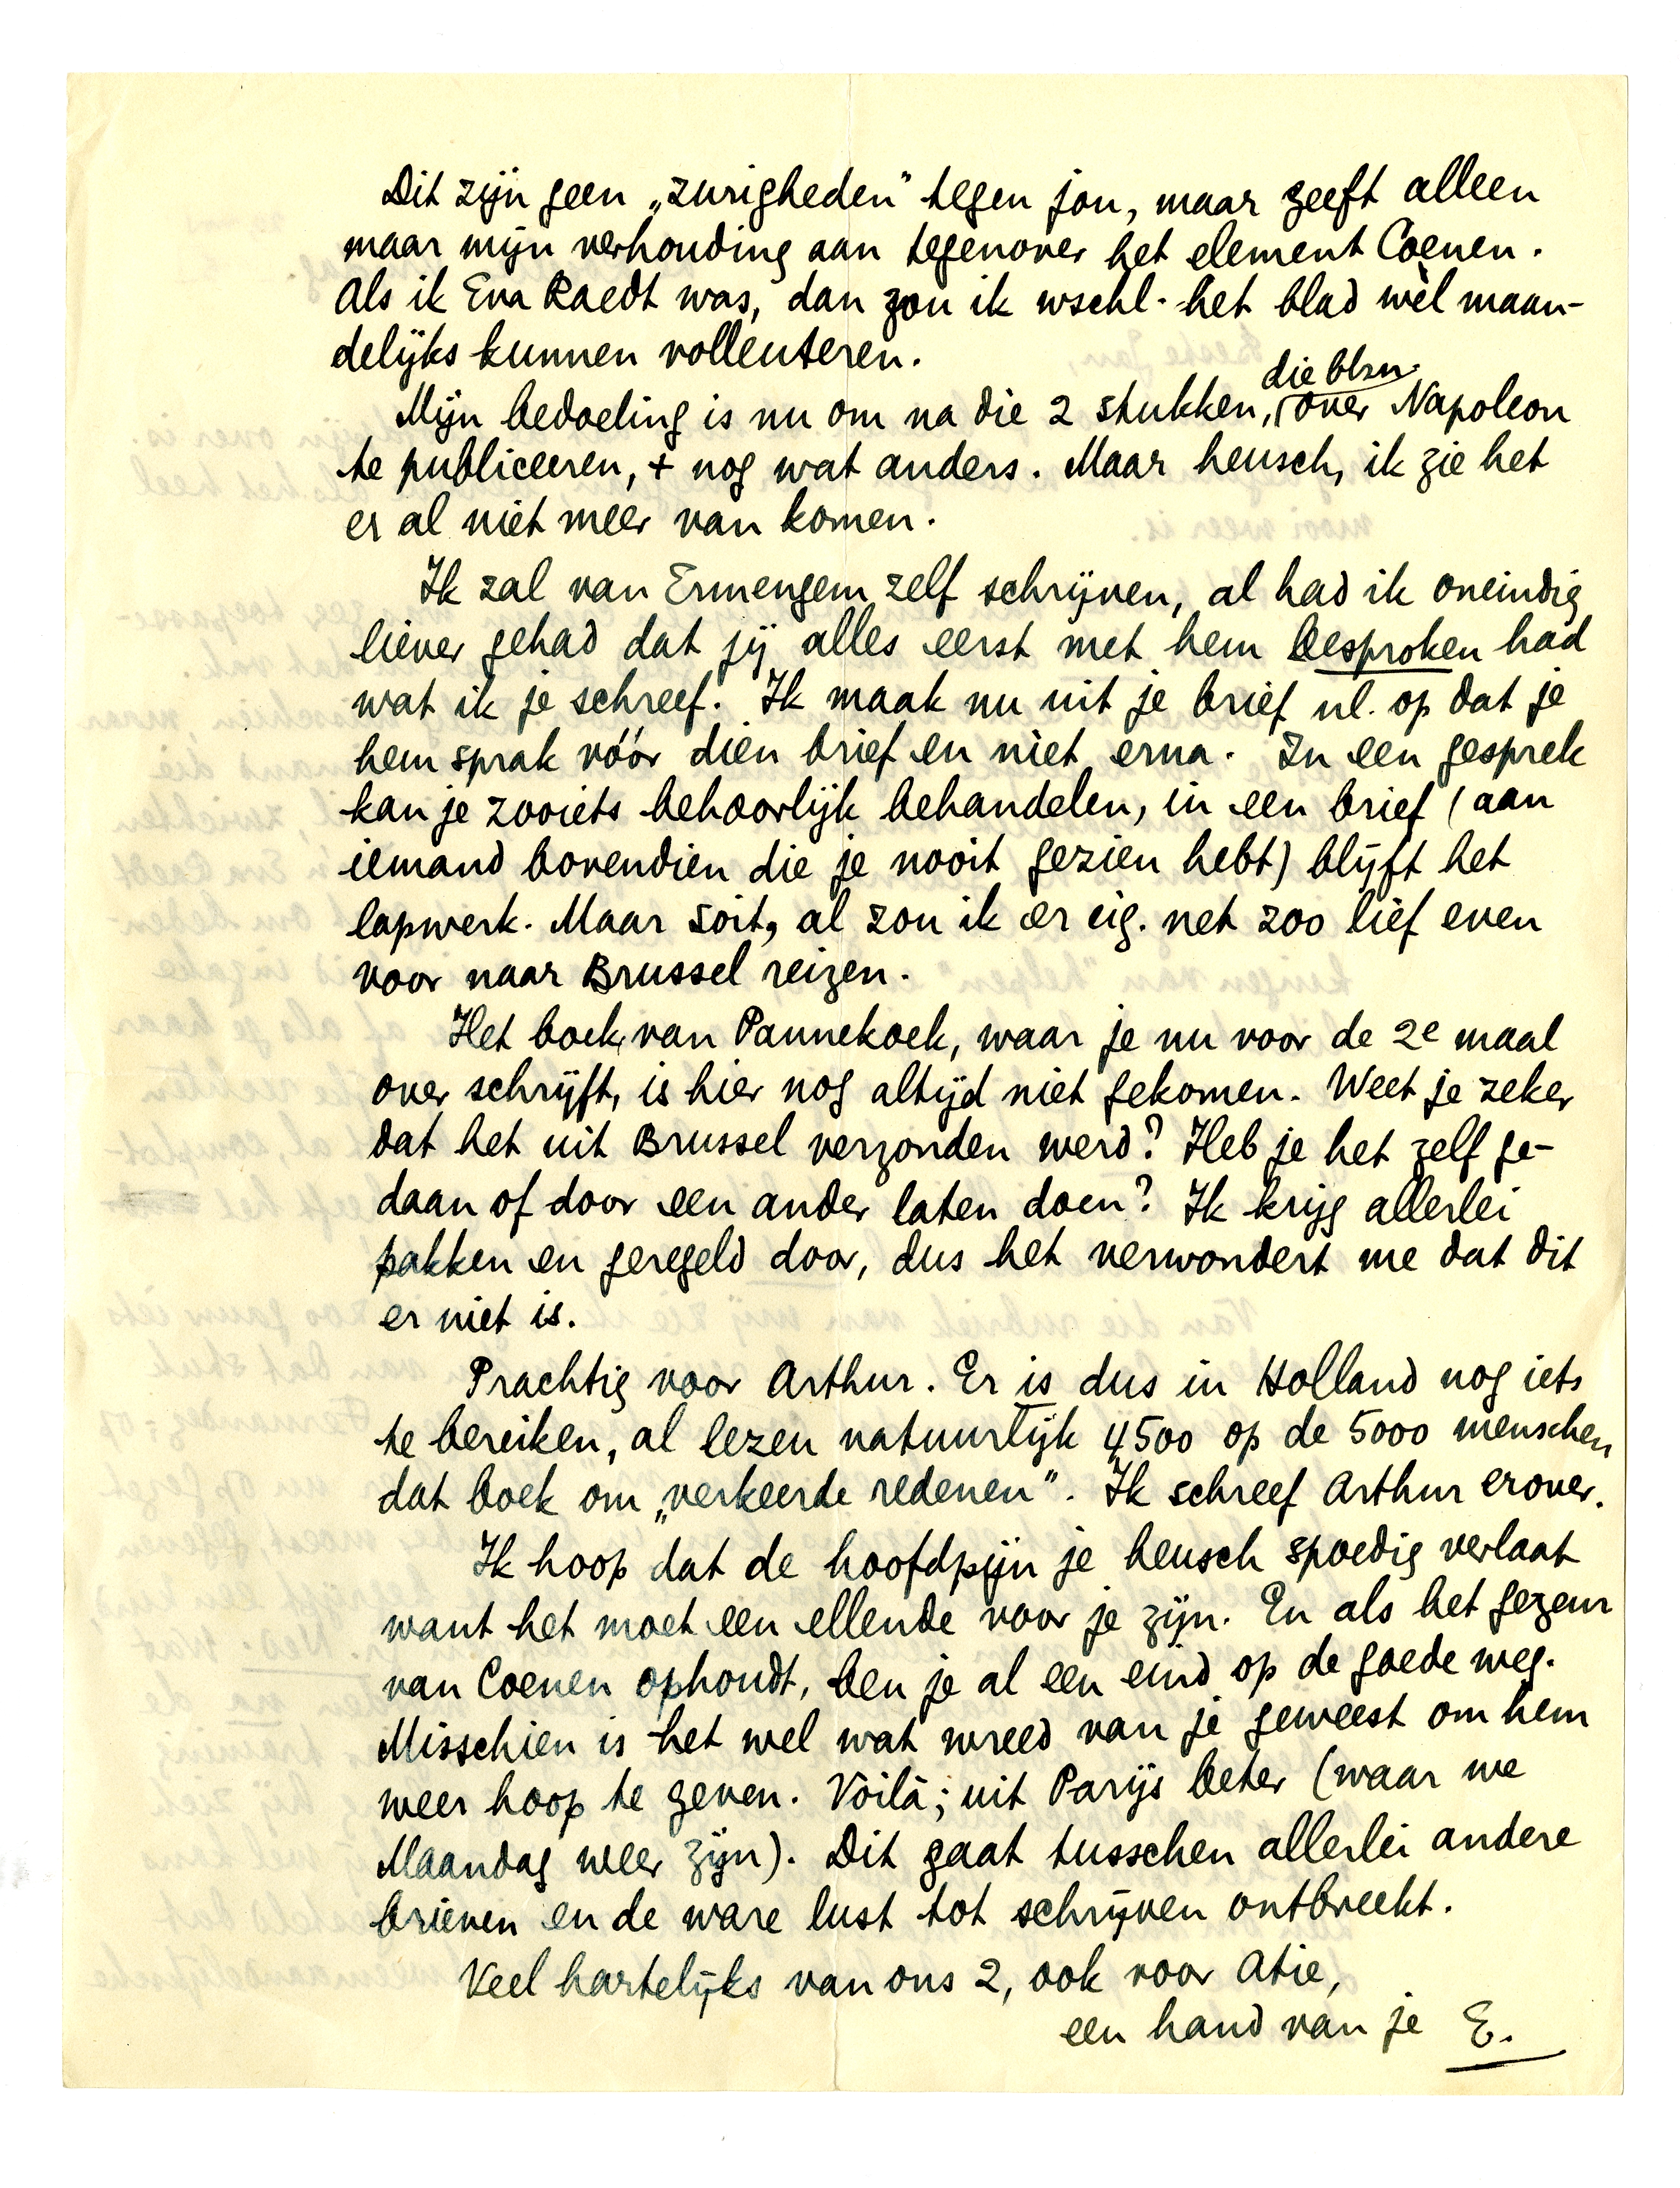 Dit zijn geen „zurigheden" tegen jou, maar geeft alleen
maar mijn verhouding aan tegenover het element Coenen.
Als ik Eva Raedt was, dan zou ik wschl. het blad wèl maan-
delijks kunnen vollenteren.
die blzn.
Mijn bedoeling is nu om na die 2 stukken, over Napoleon
te publiceeren, + nog wat anders. Maar heusch, ik zie het
er al niet meer van komen.
Ik zal van Ermengem zelf schrijven, al had ik oneindig
liever gehad dat jij alles eerst met hem besproken had
wat ik je schreef. Ik maak nu uit je brief nl. op dat je
hem sprak vóór dien brief en niet erna. In een gesprek
kan je zooiets behoorlijk behandelen, in een brief (aan
iemand bovendien die je nooit gezien hebt) blijft het
lapwerk. Maar soit, al zou ik er eig. net zoo lief even
voor naar Brussel reizen.
Het boek van Pannekoek, waar je nu voor de 2e maal
over schrijft, is hier nog altijd niet gekomen. Weet je zeker
dat het uit Brussel verzonden werd? Heb je het zelf ge-
daan of door een ander laten doen? Ik krijg allerlei
pakken en geregeld door, dus het verwondert me dat dit
er niet is.
Prachtig voor Arthur. Er is dus in Holland nog iets
te bereiken, al lezen natuurlijk 4500 op de 5000 menschen
dat boek om „verkeerde redenen". Ik schreef Arthur erover.
Ik hoop dat de hoofdpijn je heusch spoedig verlaat
want het moet een ellende voor je zijn. En als het gezeur
van Coenen ophoudt, ben je al een eind op de goede weg.
Misschien is het wel wat wreed van je geweest om hem
weer hoop te geven. Voilà; uit Parijs beter (waar we
Maandag weer zijn). Dit gaat tusschen allerlei andere
brieven en de ware lust tot schrijven ontbreekt.
Veel hartelijks van ons 2, ook voor Atie,
een hand van je E.